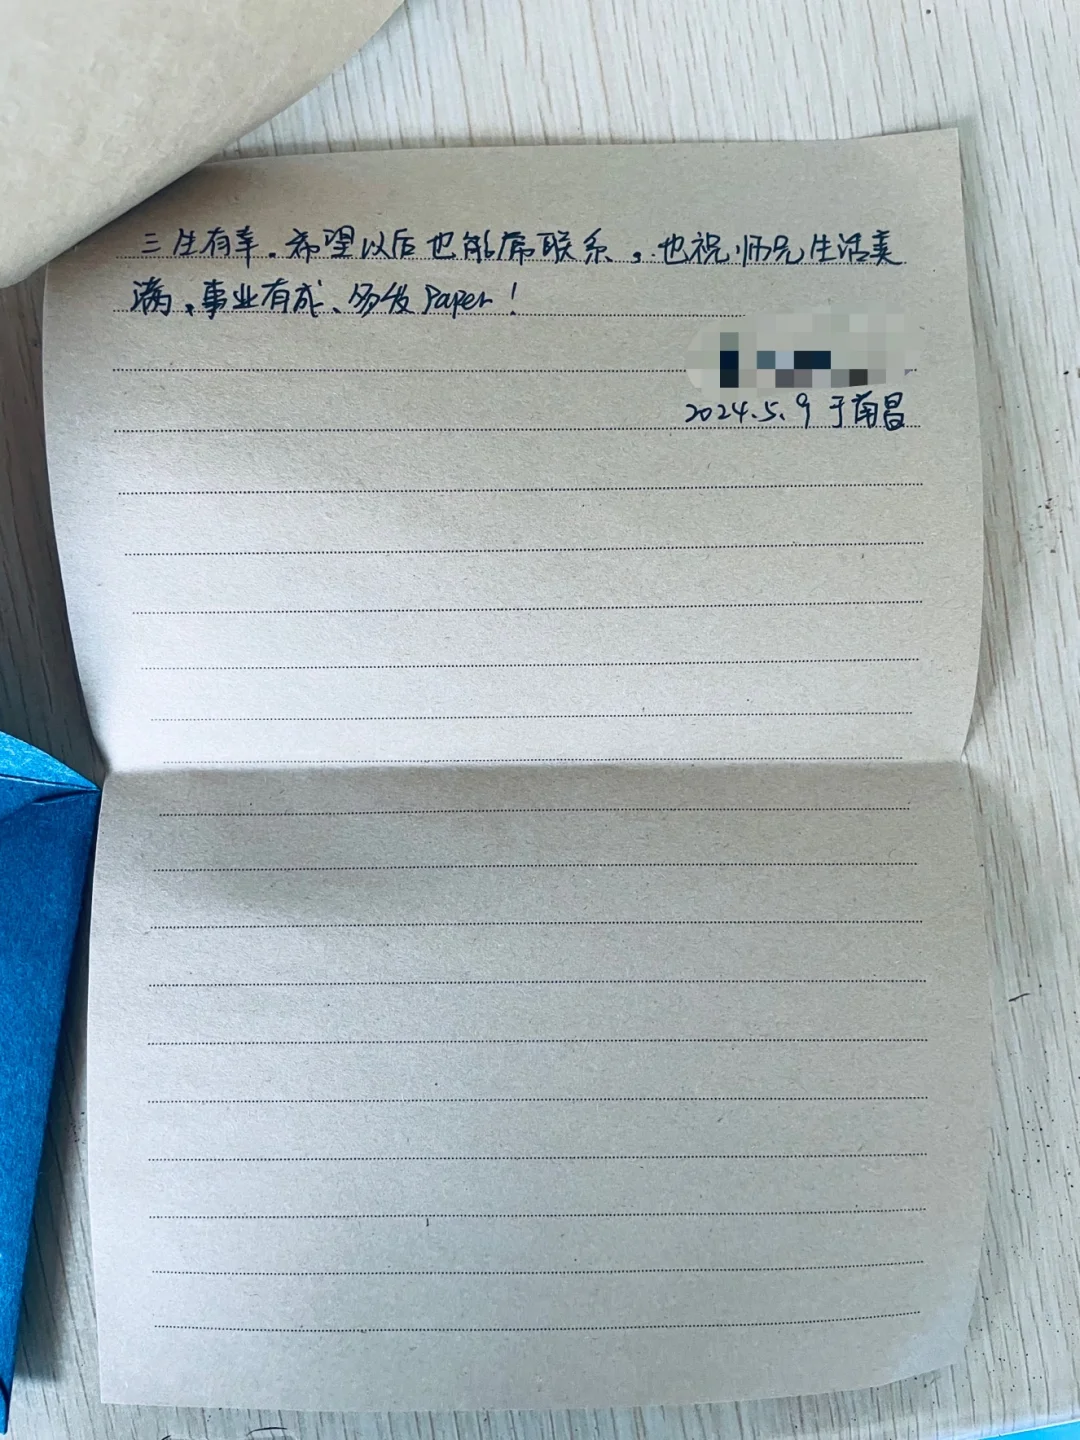 三生有幸。希望以后也能常联系，也祝师兄生活美
满、事业有成、多发Paper！
2024.5.9 于南昌